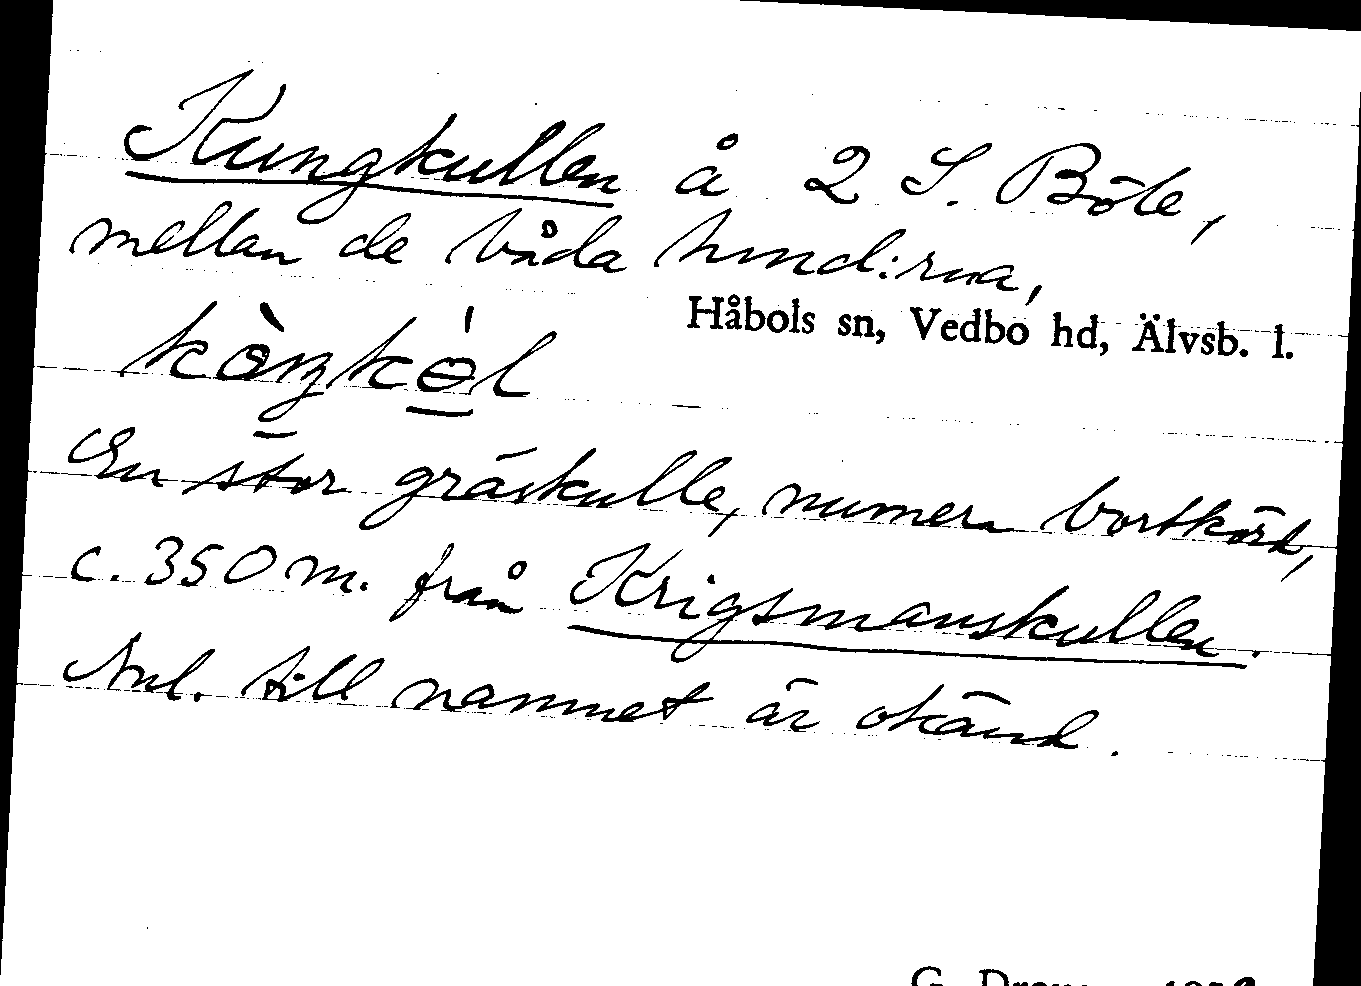 Kungkullen å 2 S. Böle,
mellan de båda hmnd:rna,
Håbols sn, Vedbo hd, Älvsb. l.
En stor gräskulle, numera bortkörd,
c. 350 m. från Krigsmanskullen.
Anl. till namnet är okänd.